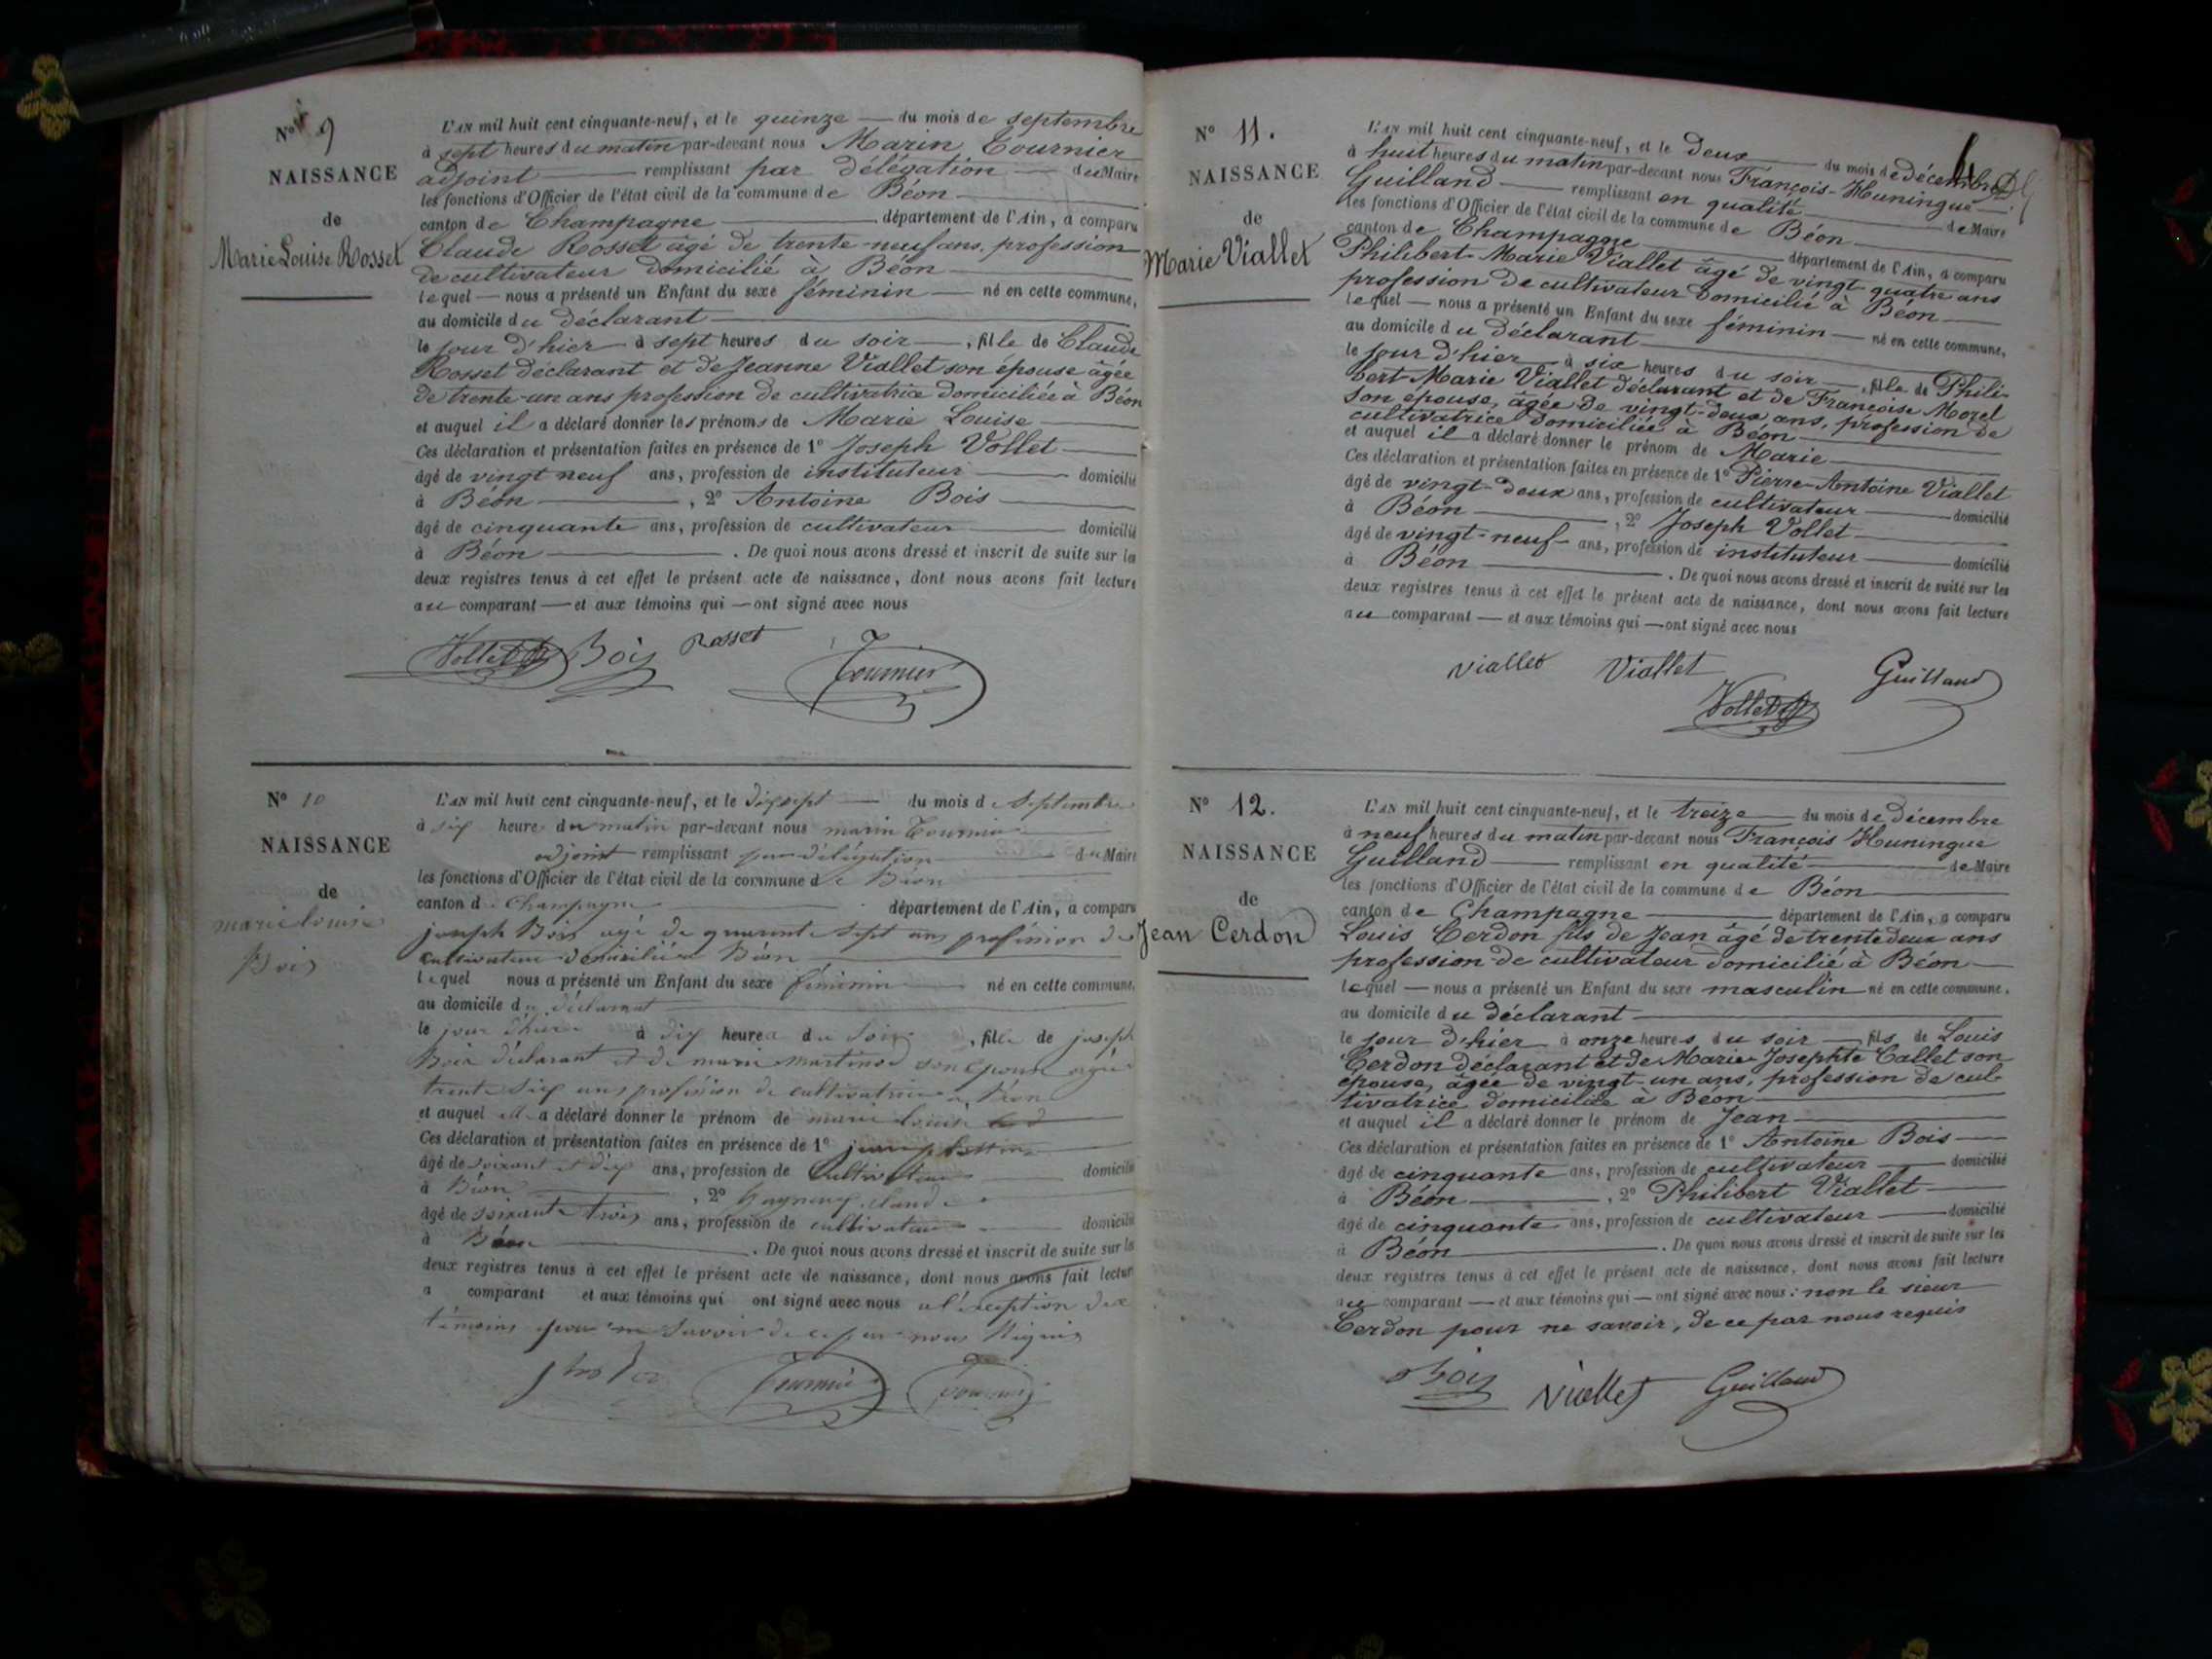 N° 9
NAISSANCE
de
Marie Louise Rosset
L'AN mil huit cent cinquante-neuf, et le quinze du mois de septembre
à sept heures du matin par-devant nous Marin Tournier
adjoint remplissant par délégation du Maire
les fonctions d'Officier de l'état civil de la commune de Béon
canton de Champagne département de l'Ain, a comparu
Claude Rosset âgé de trente-neuf ans, profession
de cultivateur domicilié à Béon
lequel nous a présenté un Enfant du sexe féminin né en cette commune,
au domicile du déclarant
le jour d'hier à sept heures du soir, fille de Claude
Rosset déclarant et de Jeanne Viallet son épouse âgée
de trente-un ans profession de cultivatrice domiciliée à Béon
et auquel il a déclaré donner les prénoms de Marie Louise
Ces déclaration et présentation faites en présence de 1° Joseph Vollet
âgé de vingt neuf ans, profession de instituteur domicilié
à Béon, 2° Antoine Bois
âgé de cinquante ans, profession de cultivateur domicilié
à Béon. De quoi nous avons dressé et inscrit de suite sur les
deux registres tenus à cet effet le présent acte de naissance, dont nous avons fait lecture
au comparant et aux témoins qui ont signé avec nous
Vollet Bois Rosset Tournier
N° 10
NAISSANCE
de
marie louise
Bois
L'AN mil huit cent cinquante-neuf, et le dix sept du mois de septembre
à six heures du matin par-devant nous marin Tournier
adjoint remplissant par délégation du Maire
les fonctions d'Officier de l'état civil de la commune de Béon
canton de Champagne département de l'Ain, a comparu
joseph Bois agé de quarante sept ans profession de
cultivateur domicilié a Béon
lequel nous a présenté un Enfant du sexe féminin né en cette commune,
au domicile du déclarant
le jour d'hier à dix heures du soir, fille de joseph
Bois déclarant et de marie martinod son épouse agée
trente six ans profession de cultivatrice a Béon
et auquel il a déclaré donner le prénom de marie louise
Ces déclaration et présentation faites en présence de 1°
âgé de soixante et dix ans, profession de cultivateur domicilié
à Béon, 2° claude
âgé de soixante trois ans, profession de cultivateur domicilié
à Béon. De quoi nous avons dressé et inscrit de suite sur les
deux registres tenus à cet effet le présent acte de naissance, dont nous avons fait lecture
a comparant et aux témoins qui ont signé avec nous a l'exception des
témoins pour ne savoir de ce par nous Requis
Tournier
N° 11.
NAISSANCE
de
Marie Viallet
L'AN mil huit cent cinquante-neuf, et le deux du mois de décembre
à huit heures du matin par-devant nous François-Huningue
Guilland remplissant en qualité de Maire
les fonctions d'Officier de l'état civil de la commune de Béon
canton de Champagne département de l'Ain, a comparu
Philibert-Marie Viallet âgé de vingt-quatre ans
profession de cultivateur domicilié à Béon
lequel nous a présenté un Enfant du sexe féminin né en cette commune,
au domicile du déclarant
le jour d'hier à six heures du soir, fille de Phili-
bert-Marie Viallet déclarant et de Françoise Morel
son épouse, âgée de vingt-deux ans, profession de
cultivatrice domiciliée à Béon
et auquel il a déclaré donner le prénom de Marie
Ces déclaration et présentation faites en présence de 1° Pierre-Antoine Viallet
âgé de vingt-deux ans, profession de cultivateur domicilié
à Béon, 2° Joseph Vollet
âgé de vingt-neuf ans, profession de instituteur domicilié
à Béon. De quoi nous avons dressé et inscrit de suite sur les
deux registres tenus à cet effet le présent acte de naissance, dont nous avons fait lecture
au comparant et aux témoins qui ont signé avec nous
Viallet Viallet Guilland
Vollet
N° 12.
NAISSANCE
de
Jean Cerdon
L'AN mil huit cent cinquante-neuf, et le treize du mois de décembre
à neuf heures du matin par-devant nous François Huningue
Guilland remplissant en qualité de Maire
les fonctions d'Officier de l'état civil de la commune de Béon
canton de Champagne département de l'Ain, a comparu
Louis Cerdon fils de Jean âgé de trente deux ans
profession de cultivateur domicilié à Béon
lequel nous a présenté un Enfant du sexe masculin né en cette commune,
au domicile du déclarant
le jour d'hier à onze heures du soir fils de Louis
Cerdon déclarant et de Marie-Josephte Callet son
épouse, âgée de vingt-un ans, profession de cul-
tivatrice domiciliée à Béon
et auquel il a déclaré donner le prénom de Jean
Ces déclaration et présentation faites en présence de 1° Antoine Bois
âgé de cinquante ans, profession de cultivateur domicilié
à Béon, 2° Philibert Viallet
âgé de cinquante ans, profession de cultivateur domicilié
à Béon. De quoi nous avons dressé et inscrit de suite sur les
deux registres tenus à cet effet le présent acte de naissance, dont nous avons fait lecture
au comparant et aux témoins qui ont signé avec nous : non le sieur
Cerdon pour ne savoir, de ce par nous requis
Bois Viallet Guilland